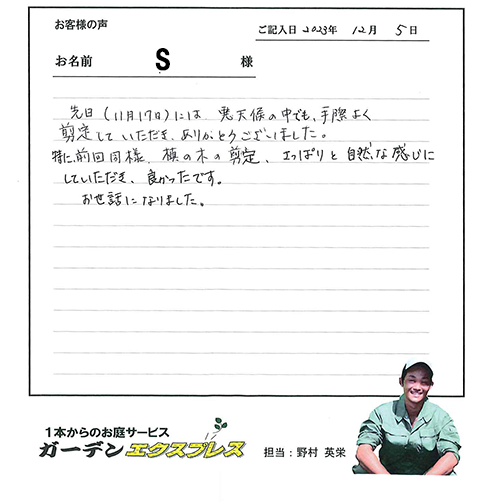 お客様の声
ご記入日 2023年 12月 5日
お名前 S 様
先日(11月17日)には、悪天候の中でも、手際よく
剪定していただき、ありがとうございました。
特に前回同様、槙の木の剪定、さっぱりと自然な感じに
していただき、良かったです。
お世話になりました。
1本からのお庭サービス
ガーデンエクスプレス
担当:野村 英栄